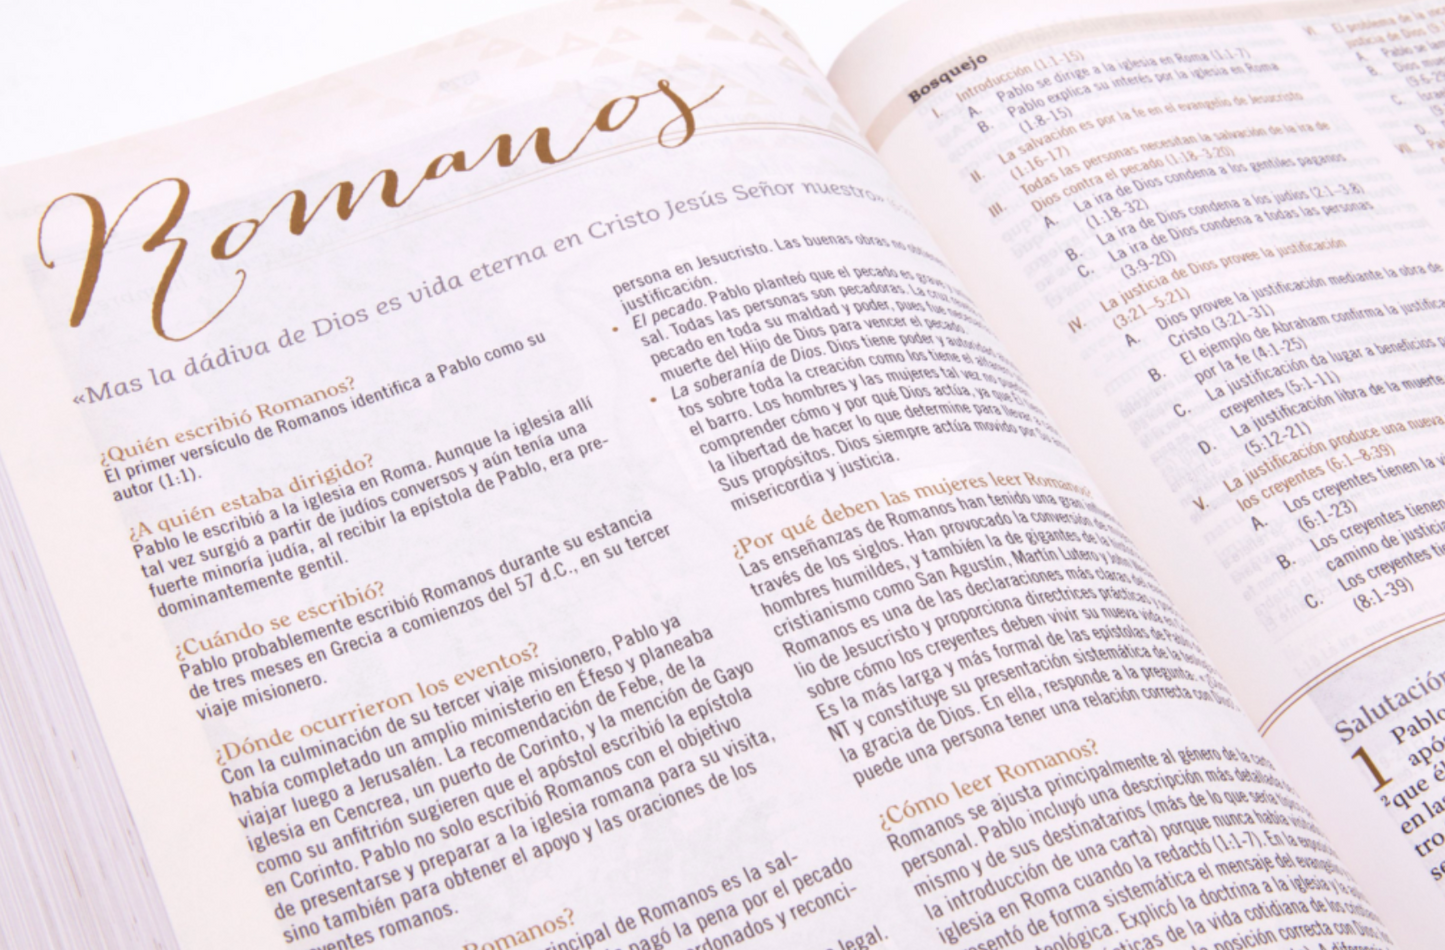 Romanos
«Mas la dádiva de Dios es vida eterna en Cristo Jesús Señor nuestro»
¿Quién escribió Romanos?
El primer versículo de Romanos identifica a Pablo como su
autor (1:1).
¿A quién estaba dirigido?
Pablo le escribió a la iglesia en Roma. Aunque la iglesia allí
tal vez surgió a partir de judíos conversos y aún tenía una
fuerte minoría judía, al recibir la epístola de Pablo, era pre-
dominantemente gentil.
¿Cuándo se escribió?
Pablo probablemente escribió Romanos durante su estancia
de tres meses en Grecia a comienzos del 57 d.C., en su tercer
viaje misionero.
¿Dónde ocurrieron los eventos?
Con la culminación de su tercer viaje misionero, Pablo ya
había completado un amplio ministerio en Éfeso y planeaba
viajar luego a Jerusalén. La recomendación de Febe, de la
iglesia en Cencrea, un puerto de Corinto, y la mención de Gayo
como su anfitrión sugieren que el apóstol escribió la epístola
en Corinto. Pablo no solo escribió Romanos con el objetivo
de presentarse y preparar a la iglesia romana para su visita,
sino también para obtener el apoyo y las oraciones de los
yentes romanos.
Romanos?
ncipal de Romanos es la sal-
pagó la pena por el pecado
rdonados y reconci-
legal.
persona en Jesucristo. Las buenas obras no
justificación.
• El pecado. Pablo planteó que el pecado es grave
sal. Todas las personas son pecadoras. La cruz
pecado en toda su maldad y poder, pues fue
muerte del Hijo de Dios para vencer el pecado.
• La soberanía de Dios. Dios tiene poder y autoridad
tos sobre toda la creación como los tiene el alfarero
el barro. Los hombres y las mujeres tal vez no
comprender cómo y por qué Dios actúa, ya que Él
la libertad de hacer lo que determine para llevar
Sus propósitos. Dios siempre actúa movido por Su
misericordia y justicia.
¿Por qué deben las mujeres leer Romanos?
Las enseñanzas de Romanos han tenido una gran
través de los siglos. Han provocado la conversión de
hombres humildes, y también la de gigantes de la
cristianismo como San Agustín, Martín Lutero y
Romanos es una de las declaraciones más claras del
lio de Jesucristo y proporciona directrices prácticas
sobre cómo los creyentes deben vivir su nueva vida en
Es la más larga y más formal de las epístolas de
NT y constituye su presentación sistemática de la
la gracia de Dios. En ella, responde a la pregunta:
puede una persona tener una relación correcta con
¿Cómo leer Romanos?
Romanos se ajusta principalmente al género de la carta
personal. Pablo incluyó una descripción más detallada
mismo y de sus destinatarios (más de lo que sería
la introducción de una carta) porque nunca había
iglesia en Roma cuando la redactó (1:1-7). En la
sentó de forma sistemática el mensaje del evangelio
teológica. Explicó la doctrina a la iglesia y la
ticas de la vida cotidiana de los
posición correcta con
Bosquejo
I. Introducción (1:1-15)
A. Pablo se dirige a la iglesia en Roma (1:1-7)
B. Pablo explica su interés por la iglesia en Roma
(1:8-15)
II. La salvación es por la fe en el evangelio de Jesucristo
(1:16-17)
III. Todas las personas necesitan la salvación de la ira de
Dios contra el pecado (1:18–3:20)
A. La ira de Dios condena a los gentiles paganos
(1:18-32)
B. La ira de Dios condena a los judíos (2:1–3:8)
C. La ira de Dios condena a todas las personas
(3:9-20)
IV. La justicia de Dios provee la justificación
(3:21–5:21)
A. Dios provee la justificación mediante la obra de
Cristo (3:21-31)
B. El ejemplo de Abraham confirma la
por la fe (4:1-25)
C. La justificación da lugar a beneficios
creyentes (5:1-11)
D. La justificación libra de la muerte
(5:12-21)
V. La justificación produce una nueva
los creyentes (6:1–8:39)
A. Los creyentes tienen la
(6:1-23)
B. Los creyentes tienen
camino de justicia
C. Los creyentes
(8:1-39)
El problema de la
justicia de Dios
A.
B.
C.
D.
Salutación
1 Pablo
apó
2 que él
en la
tro